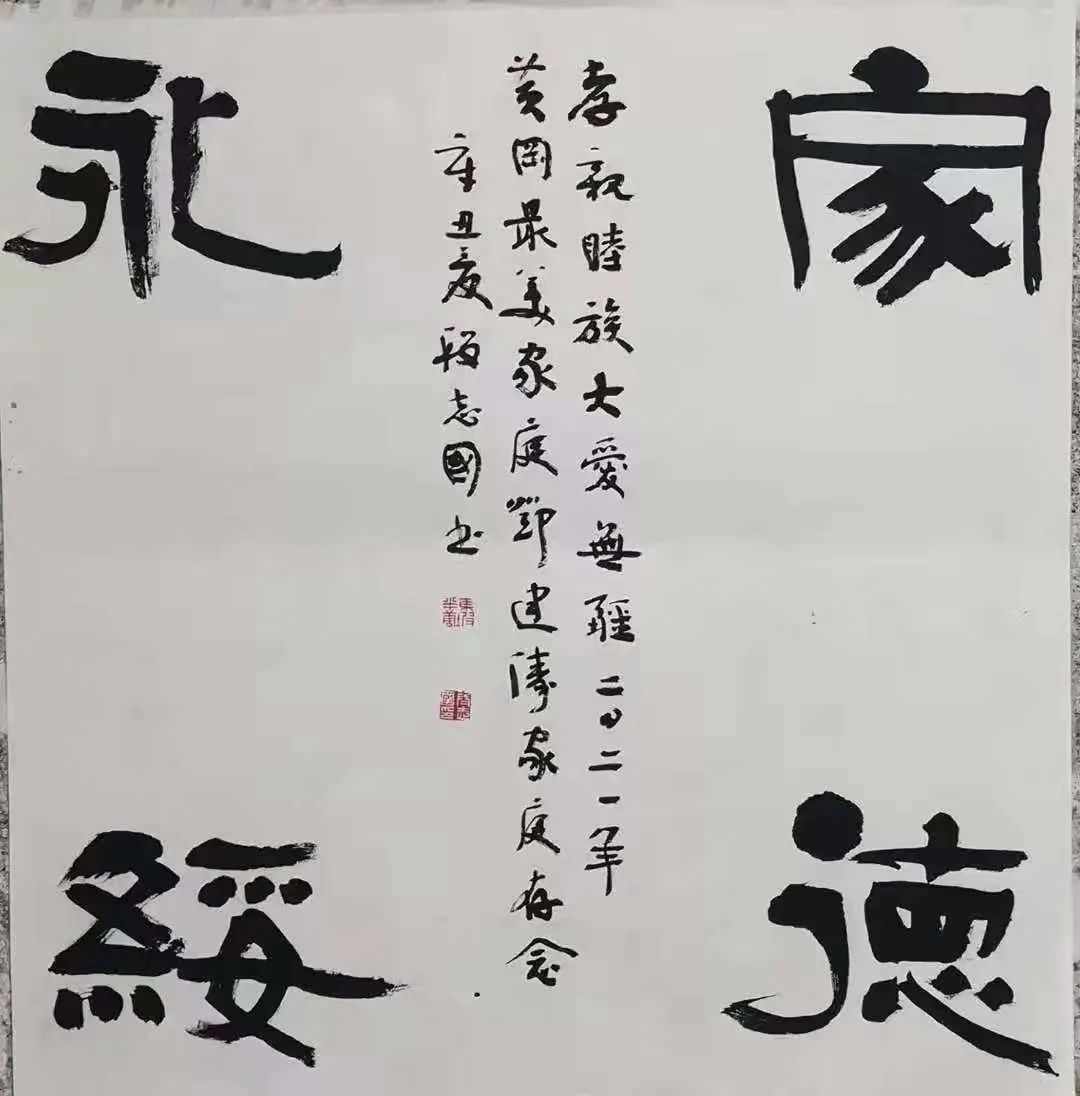 家德
永綏
孝親睦族大愛無疆二〇二一年
黄岡最美家庭鄂建濤家庭存念
辛丑夏段志國书